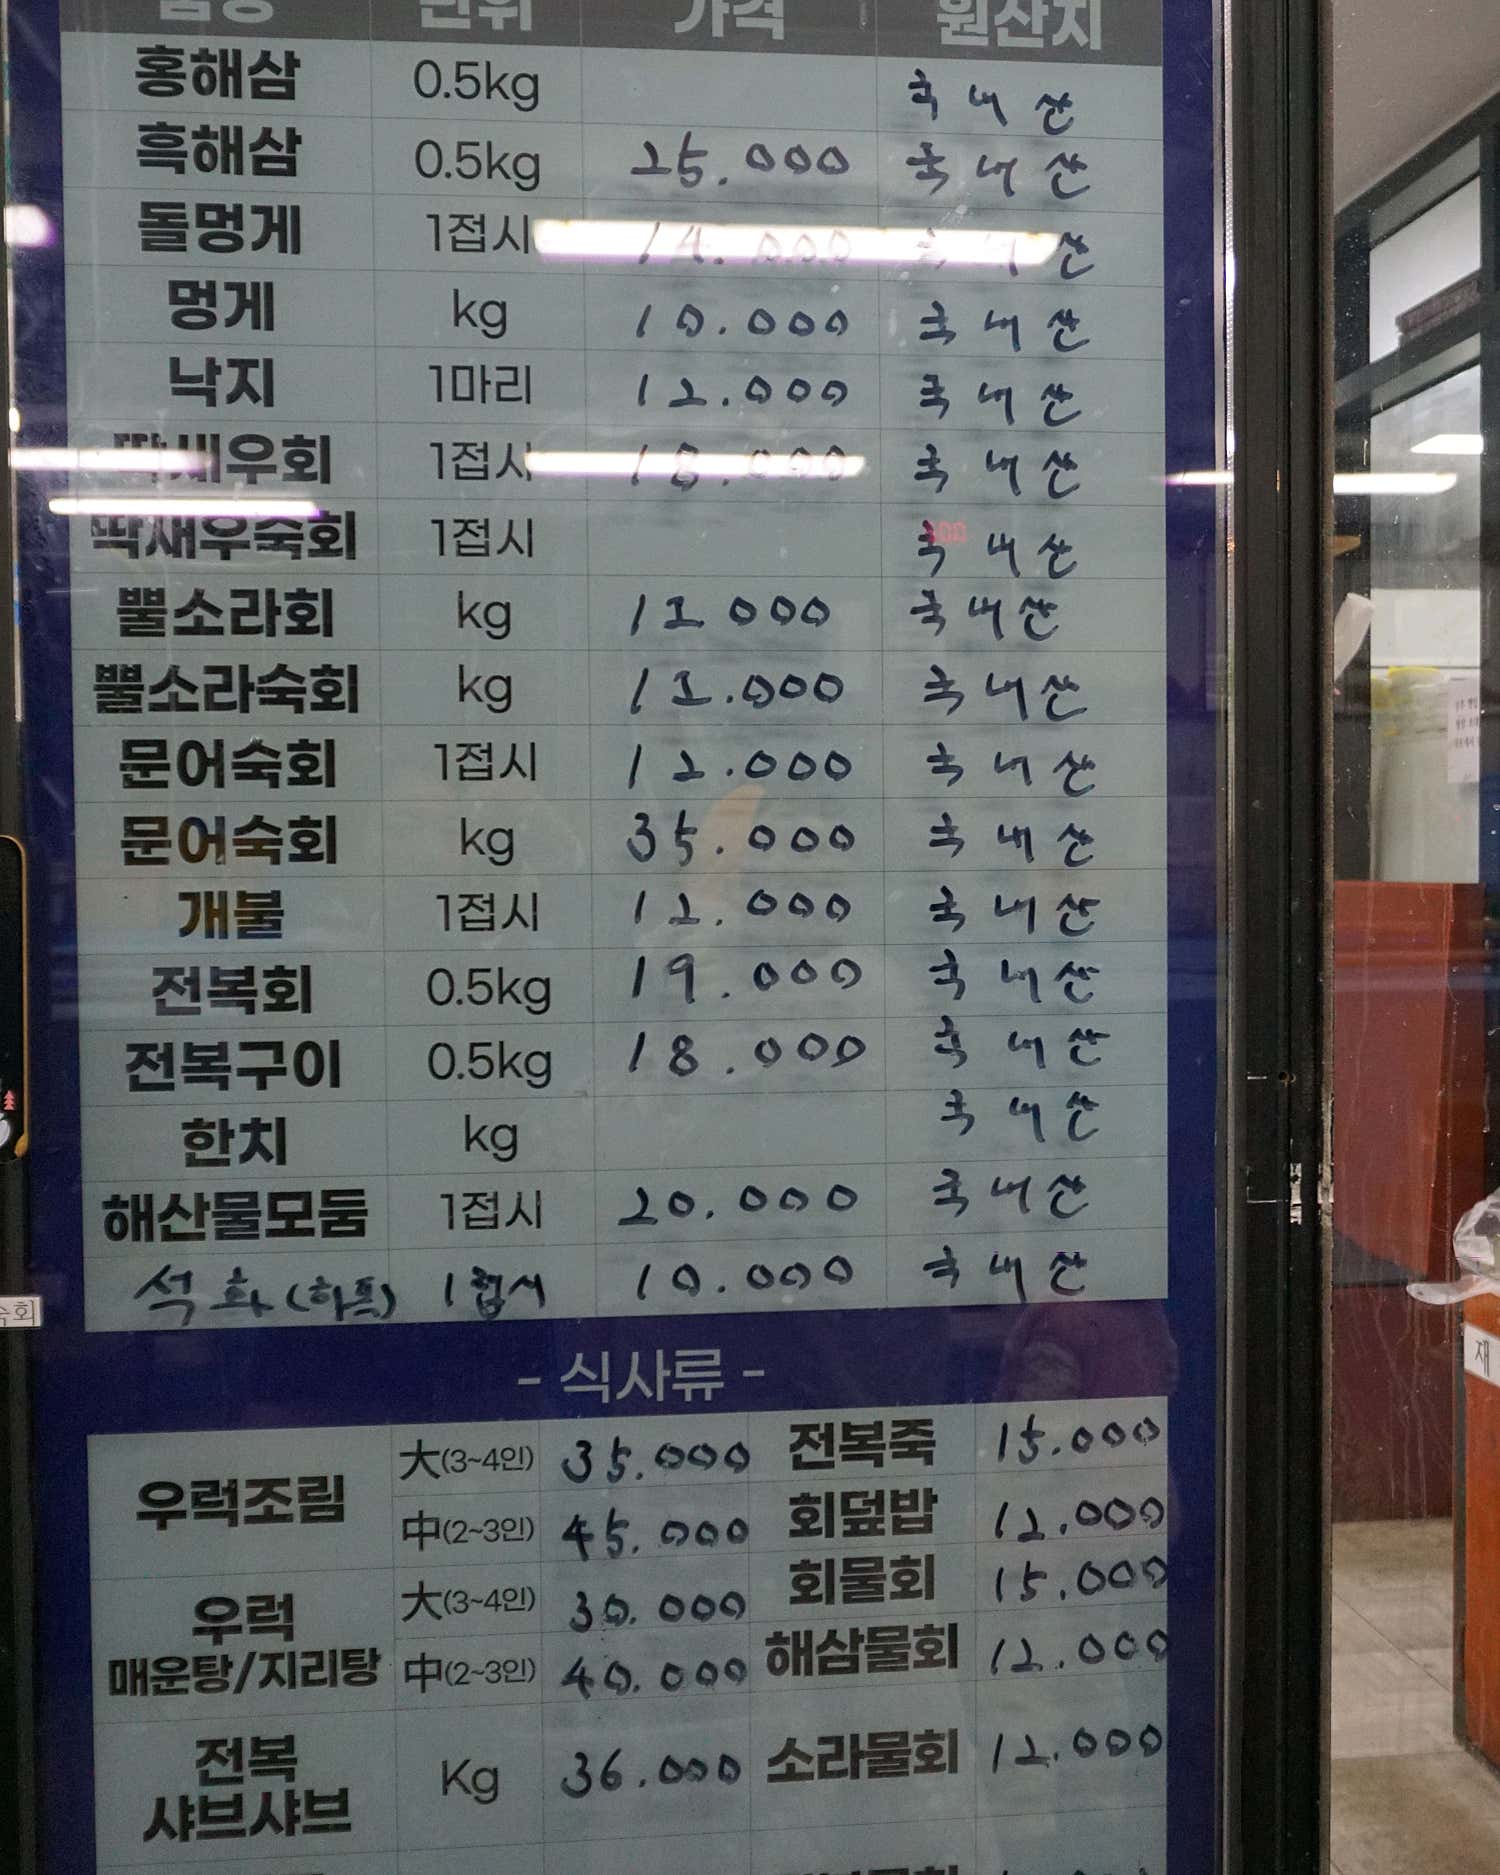 품명 단위 가격 원산지
홍해삼 0.5kg 국내산
흑해삼 0.5kg 25.000 국내산
돌멍게 1접시 14.000 국내산
멍게 kg 10.000 국내산
낙지 1마리 12.000 국내산
딱새우회 1접시 18.000 국내산
딱새우숙회 1접시 국내산
뿔소라회 kg 국내산
뿔소라숙회 kg 국내산
문어숙회 1접시 12.000 국내산
문어숙회 kg 35.000 국내산
개불 1접시 12.000 국내산
전복회 0.5kg 19.000 국내산
전복구이 0.5kg 18.000 국내산
한치 kg 국내산
해산물모둠 1접시 20.000 국내산
석화(하프) 1접시 10.000 국내산
숙회
- 식사류 -
우럭조림 大(3~4인) 35.000 전복죽 15.000
中(2~3인) 45.000 회덮밥 12.000
우럭 매운탕/지리탕 大(3~4인) 30.000 회물회 15.000
中(2~3인) 40.000 해삼물회 12.000
전복 샤브샤브 Kg 36.000 소라물회 12.000
재